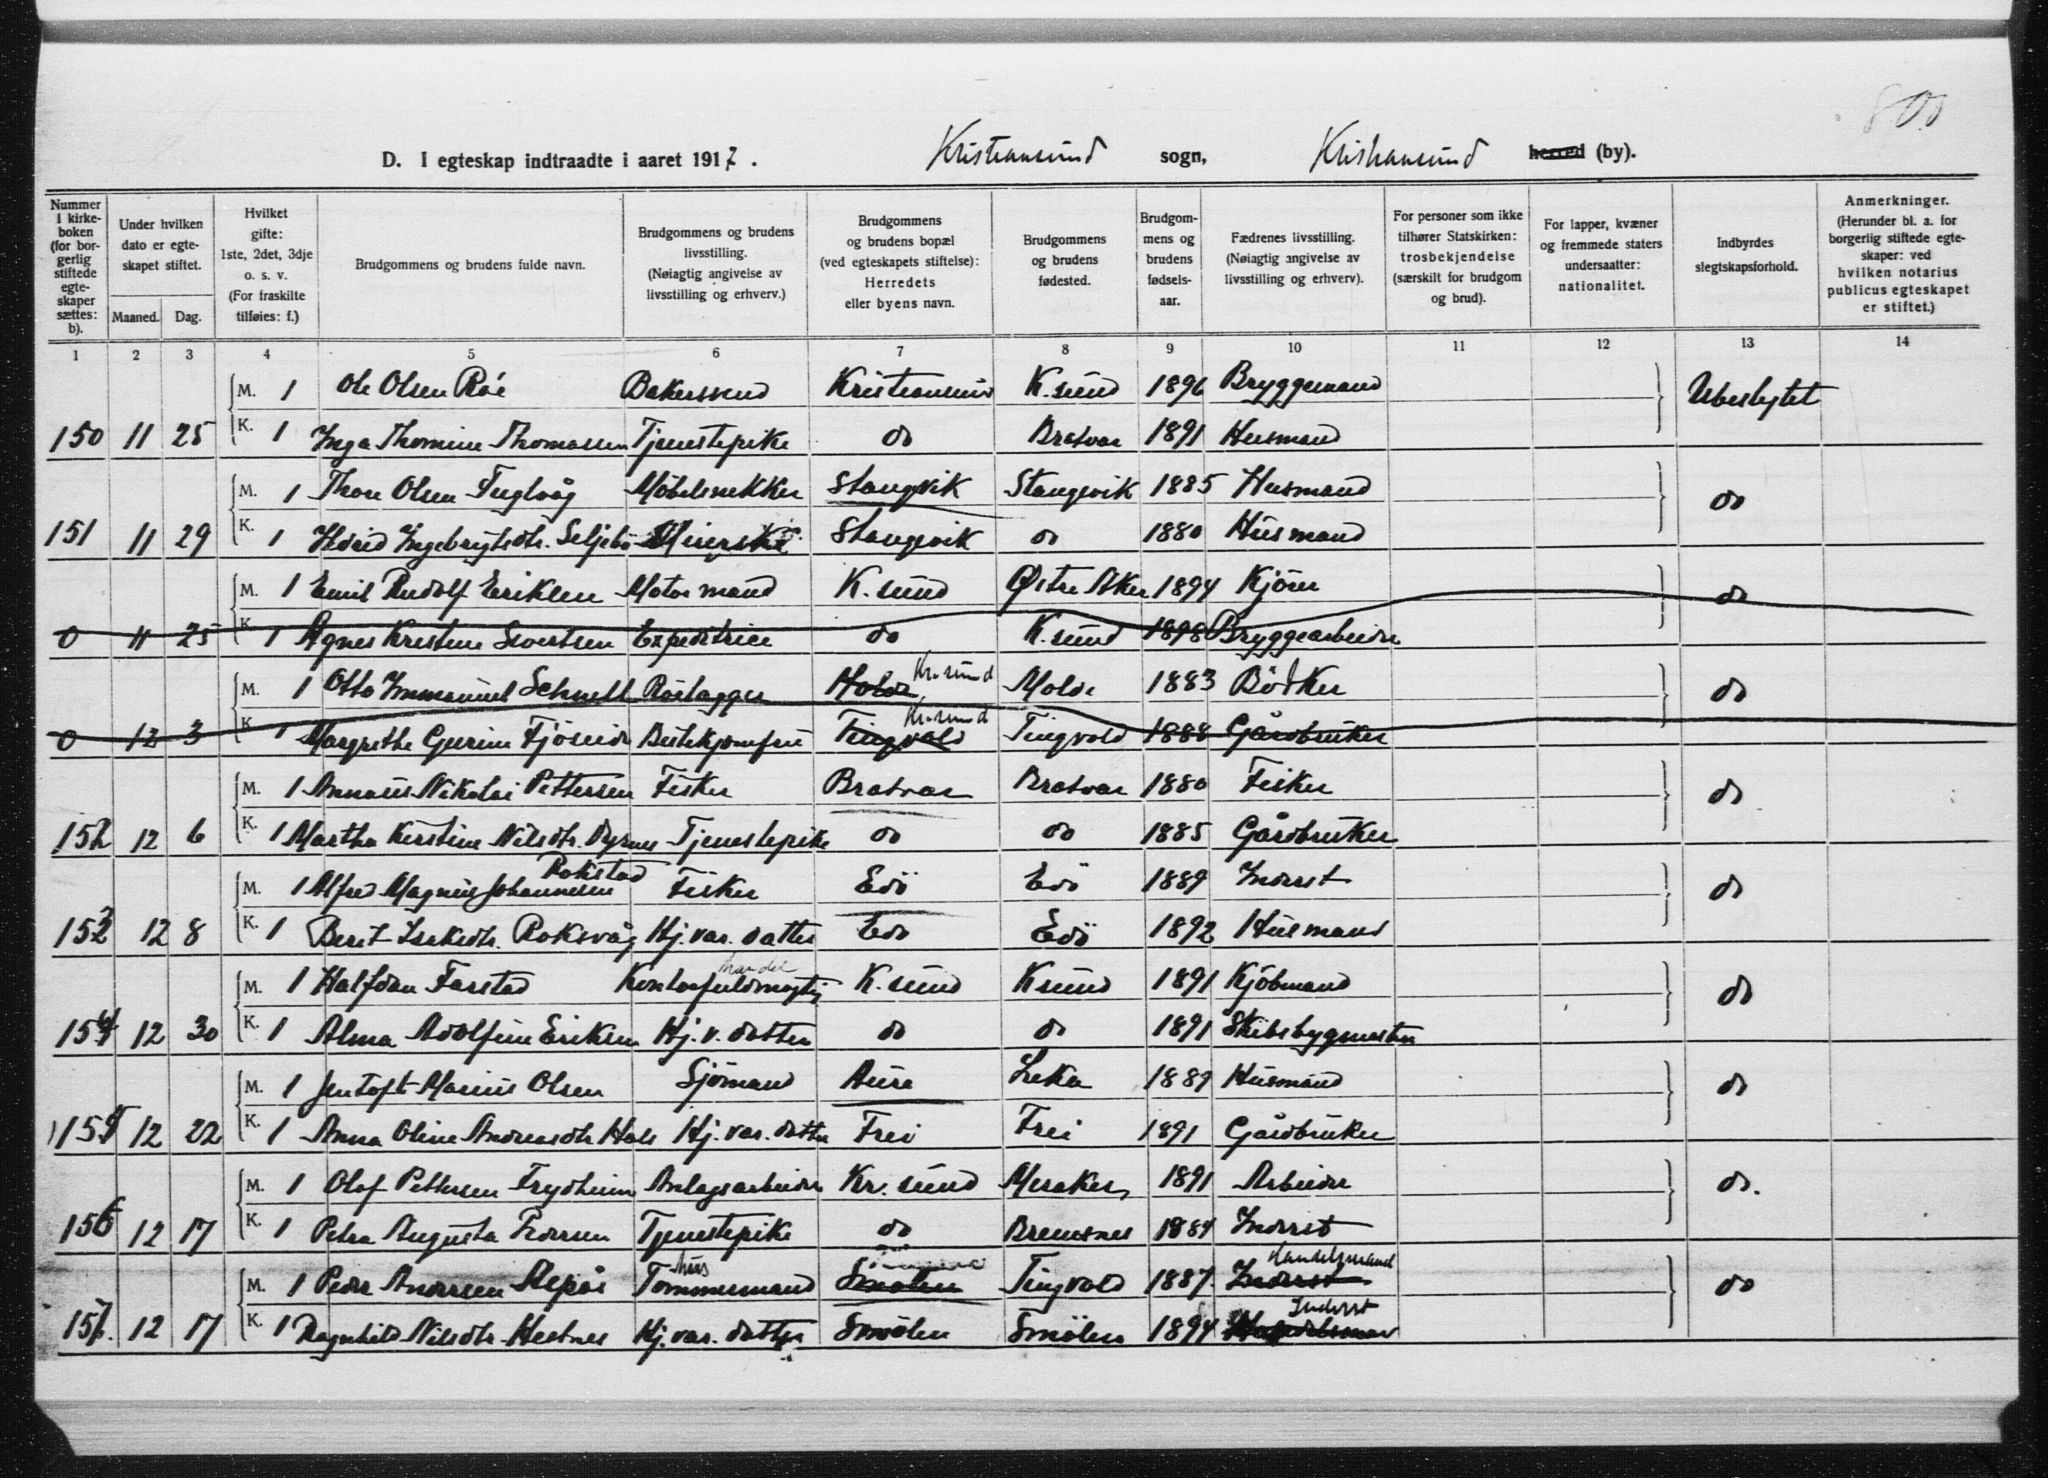 800
D. I egteskap indtraadte i aaret 1917. Kristiansund sogn, Kristiansund herred (by).
Nummer i kirkeboken (for borgerlig stiftede egteskaper sættes: b).
Under hvilken dato er egteskapet stiftet.
Maaned. Dag.
Hvilket gifte: 1ste, 2det, 3dje o. s. v. (For fraskilte tilføies: f.)
Brudgommens og brudens fulde navn.
Brudgommens og brudens livsstilling. (Nøiagtig angivelse av livsstilling og erhverv.)
Brudgommens og brudens bopæl (ved egteskapets stiftelse): Herredets eller byens navn.
Brudgommens og brudens fødested.
Brudgommens og brudens fødselsaar.
Fædrenes livsstilling. (Nøiagtig angivelse av livsstilling og erhverv).
For personer som ikke tilhører Statskirken: trosbekjendelse (særskilt for brudgom og brud).
For lapper, kvæner og fremmede staters undersaatter: nationalitet.
Indbyrdes slegtskapsforhold.
Anmerkninger. (Herunder bl. a. for borgerlig stiftede egteskaper: ved hvilken notarius publicus egteskapet er stiftet.)
1 2 3 4 5 6 7 8 9 10 11 12 13 14
M. 1 Ole Olsen Röe Bakersvend Kristiansund K.sund 1896 Bryggemand Ubeslegtet
150 11 25 K. 1 Inga Thomine Thomasen Tjenestepike do Bratvær 1891 Husmand
M. 1 Thore Olsen Fuglvåg Möbelsnekker Stangvik Stangvik 1885 Husmand do
151 11 29 K. 1 Ingebrigtsdtr. Seljebö Meierske Stangvik do 1880 Husmand
M. 1 Emil Rudolf Eriksen Motormand K.sund Østre Aker 1894 Kjörer do
0 11 25 K. 1 Agnes Kristine Sivertsen Expeditrice do K.sund 1898 Bryggearbeider
M. 1 Otto Immanuel Schnell Rörlægger Molde Kr.sund Molde 1883 Bödker do
0 12 3 K. 1 Margrethe Gurine Fjöseide Butikjomfru Tingvold Kr.sund Tingvold 1888 Gårdbruker
M. 1 Annæus Nikolai Pettersen Fisker Bratvær Bratvær 1880 Fisker do
152 12 6 K. 1 Martha Kirstine Nilsdtr. Dyrnes Tjenestepike do do 1885 Gårdbruker
M. 1 Alfred Magnus Johannesen Rokstad Fisker Edö Edö 1889 Inderst do
153 12 8 K. 1 Berit Isaksdtr. Roksvåg Hj.vær. datter Edö Edö 1892 Husmand
M. 1 Halfdan Farstad Kontorfuldmægtig handel K.sund Ksund 1891 Kjöbmand do
154 12 30 K. 1 Alma Adolfine Eriksen Hj.v. datter do do 1891 Skibsbygmester
M. 1 Jentoft Marius Olsen Sjömand Aure Leka 1889 Husmand do
155 12 22 K. 1 Anna Oline Andreasdtr Hals Hj.vær. datter Frei Frei 1891 Gårdbruker
M. 1 Olaf Pettersen Frydheim Anlægsarbeider Kr.sund Meraker 1891 Arbeider do.
156 12 17 K. 1 Petra Augusta Pedersen Tjenestepike do Bremsnes 1884 Inderst
M. 1 Peder Andersen hus Tømmermand Smölen Tingvold 1887 Inderst Handelsmand do
157. 12 17 K. 1 Ragnhild Nilsdtr. Hestnes Hj.vær. datter Smölen Smölen 1894 Handelsmand Inderst